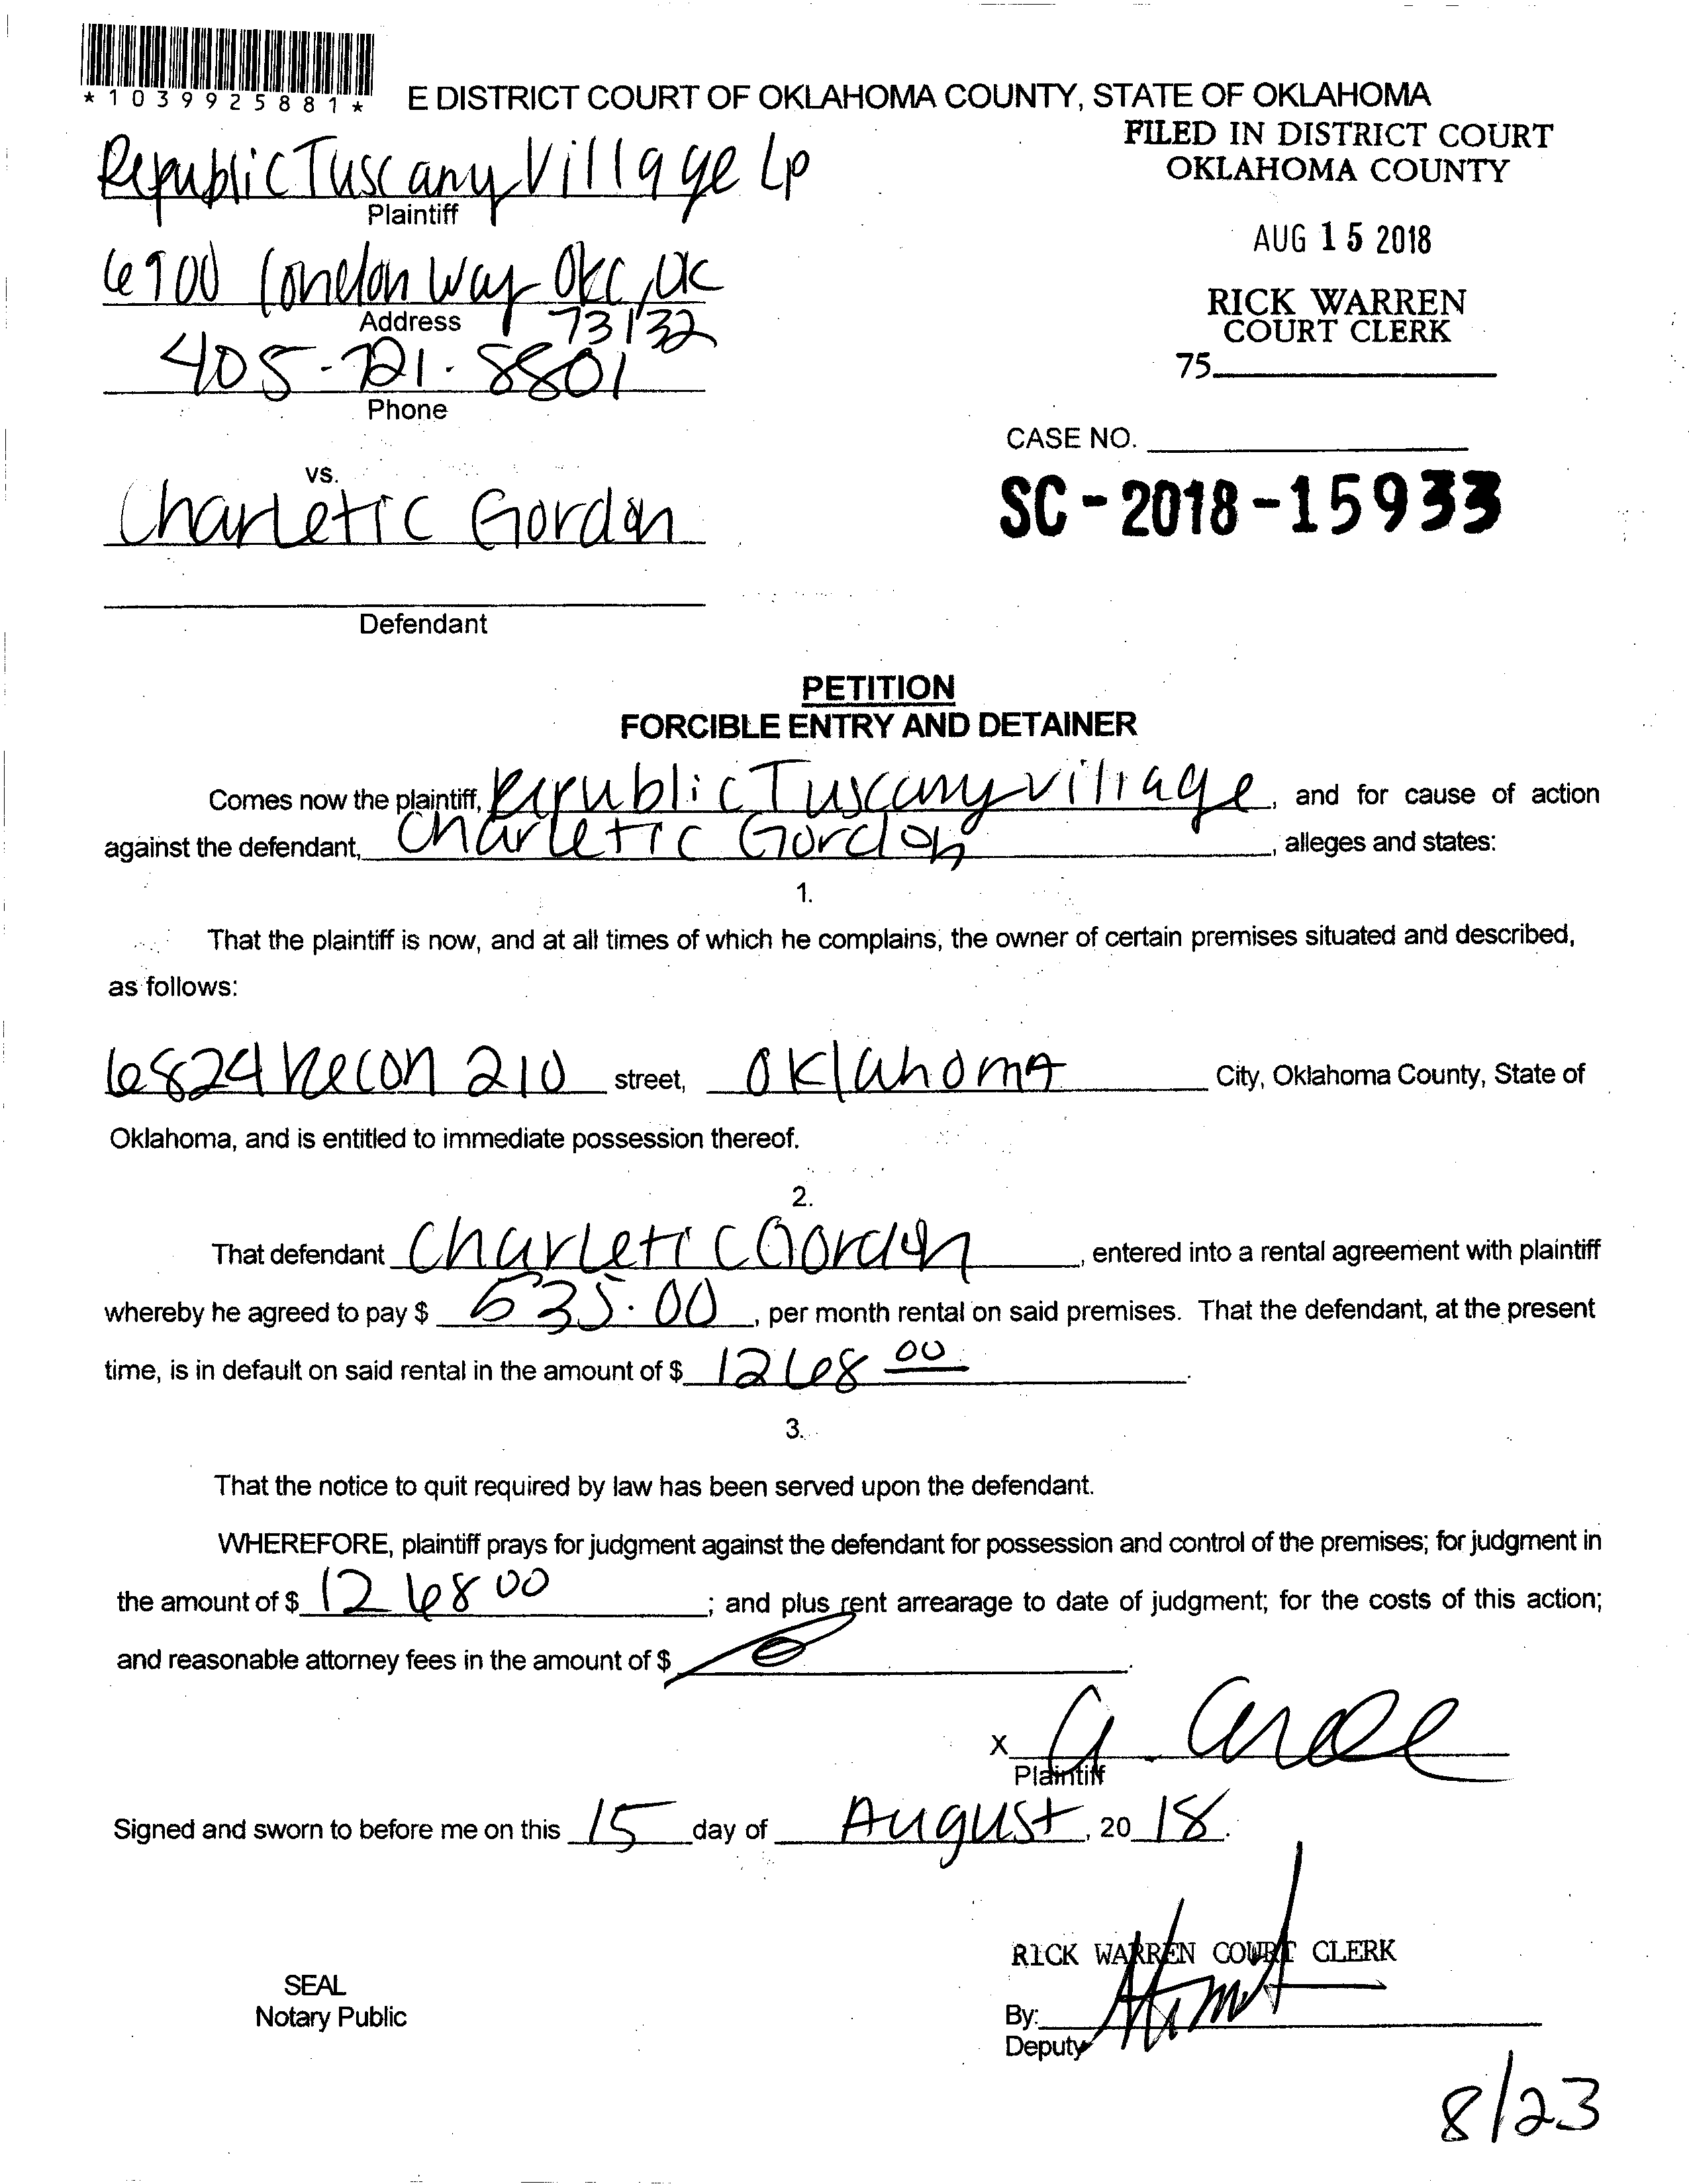 *1039925881*
E DISTRICT COURT OF OKLAHOMA COUNTY, STATE OF OKLAHOMA
FILED IN DISTRICT COURT
OKLAHOMA COUNTY
Republic Tuscany Village Lp
Plaintiff
AUG 15 2018
6900 London Way OKC, OK
Address 73132
RICK WARREN
COURT CLERK
405-721-8801
75
Phone
CASE NO.
vs.
Charletic Gordon
SC-2018-15933
Defendant
PETITION
FORCIBLE ENTRY AND DETAINER
Comes now the plaintiff, Republic Tuscany village, and for cause of action
against the defendant, Charletic Gordon, alleges and states:
1.
That the plaintiff is now, and at all times of which he complains, the owner of certain premises situated and described,
as follows:
6824 210 street, Oklahoma City, Oklahoma County, State of
Oklahoma, and is entitled to immediate possession thereof.
2.
That defendant Charletic Gordon, entered into a rental agreement with plaintiff
whereby he agreed to pay $ 535.00, per month rental on said premises. That the defendant, at the present
time, is in default on said rental in the amount of $ 1268 00.
3.
That the notice to quit required by law has been served upon the defendant.
WHEREFORE, plaintiff prays for judgment against the defendant for possession and control of the premises; for judgment in
the amount of $ 1268 00; and plus rent arrearage to date of judgment; for the costs of this action;
and reasonable attorney fees in the amount of $
X
Plaintiff
Signed and sworn to before me on this 15 day of August, 20 18.
RICK WARREN COURT CLERK
SEAL
Notary Public
By:
Deputy
8/23